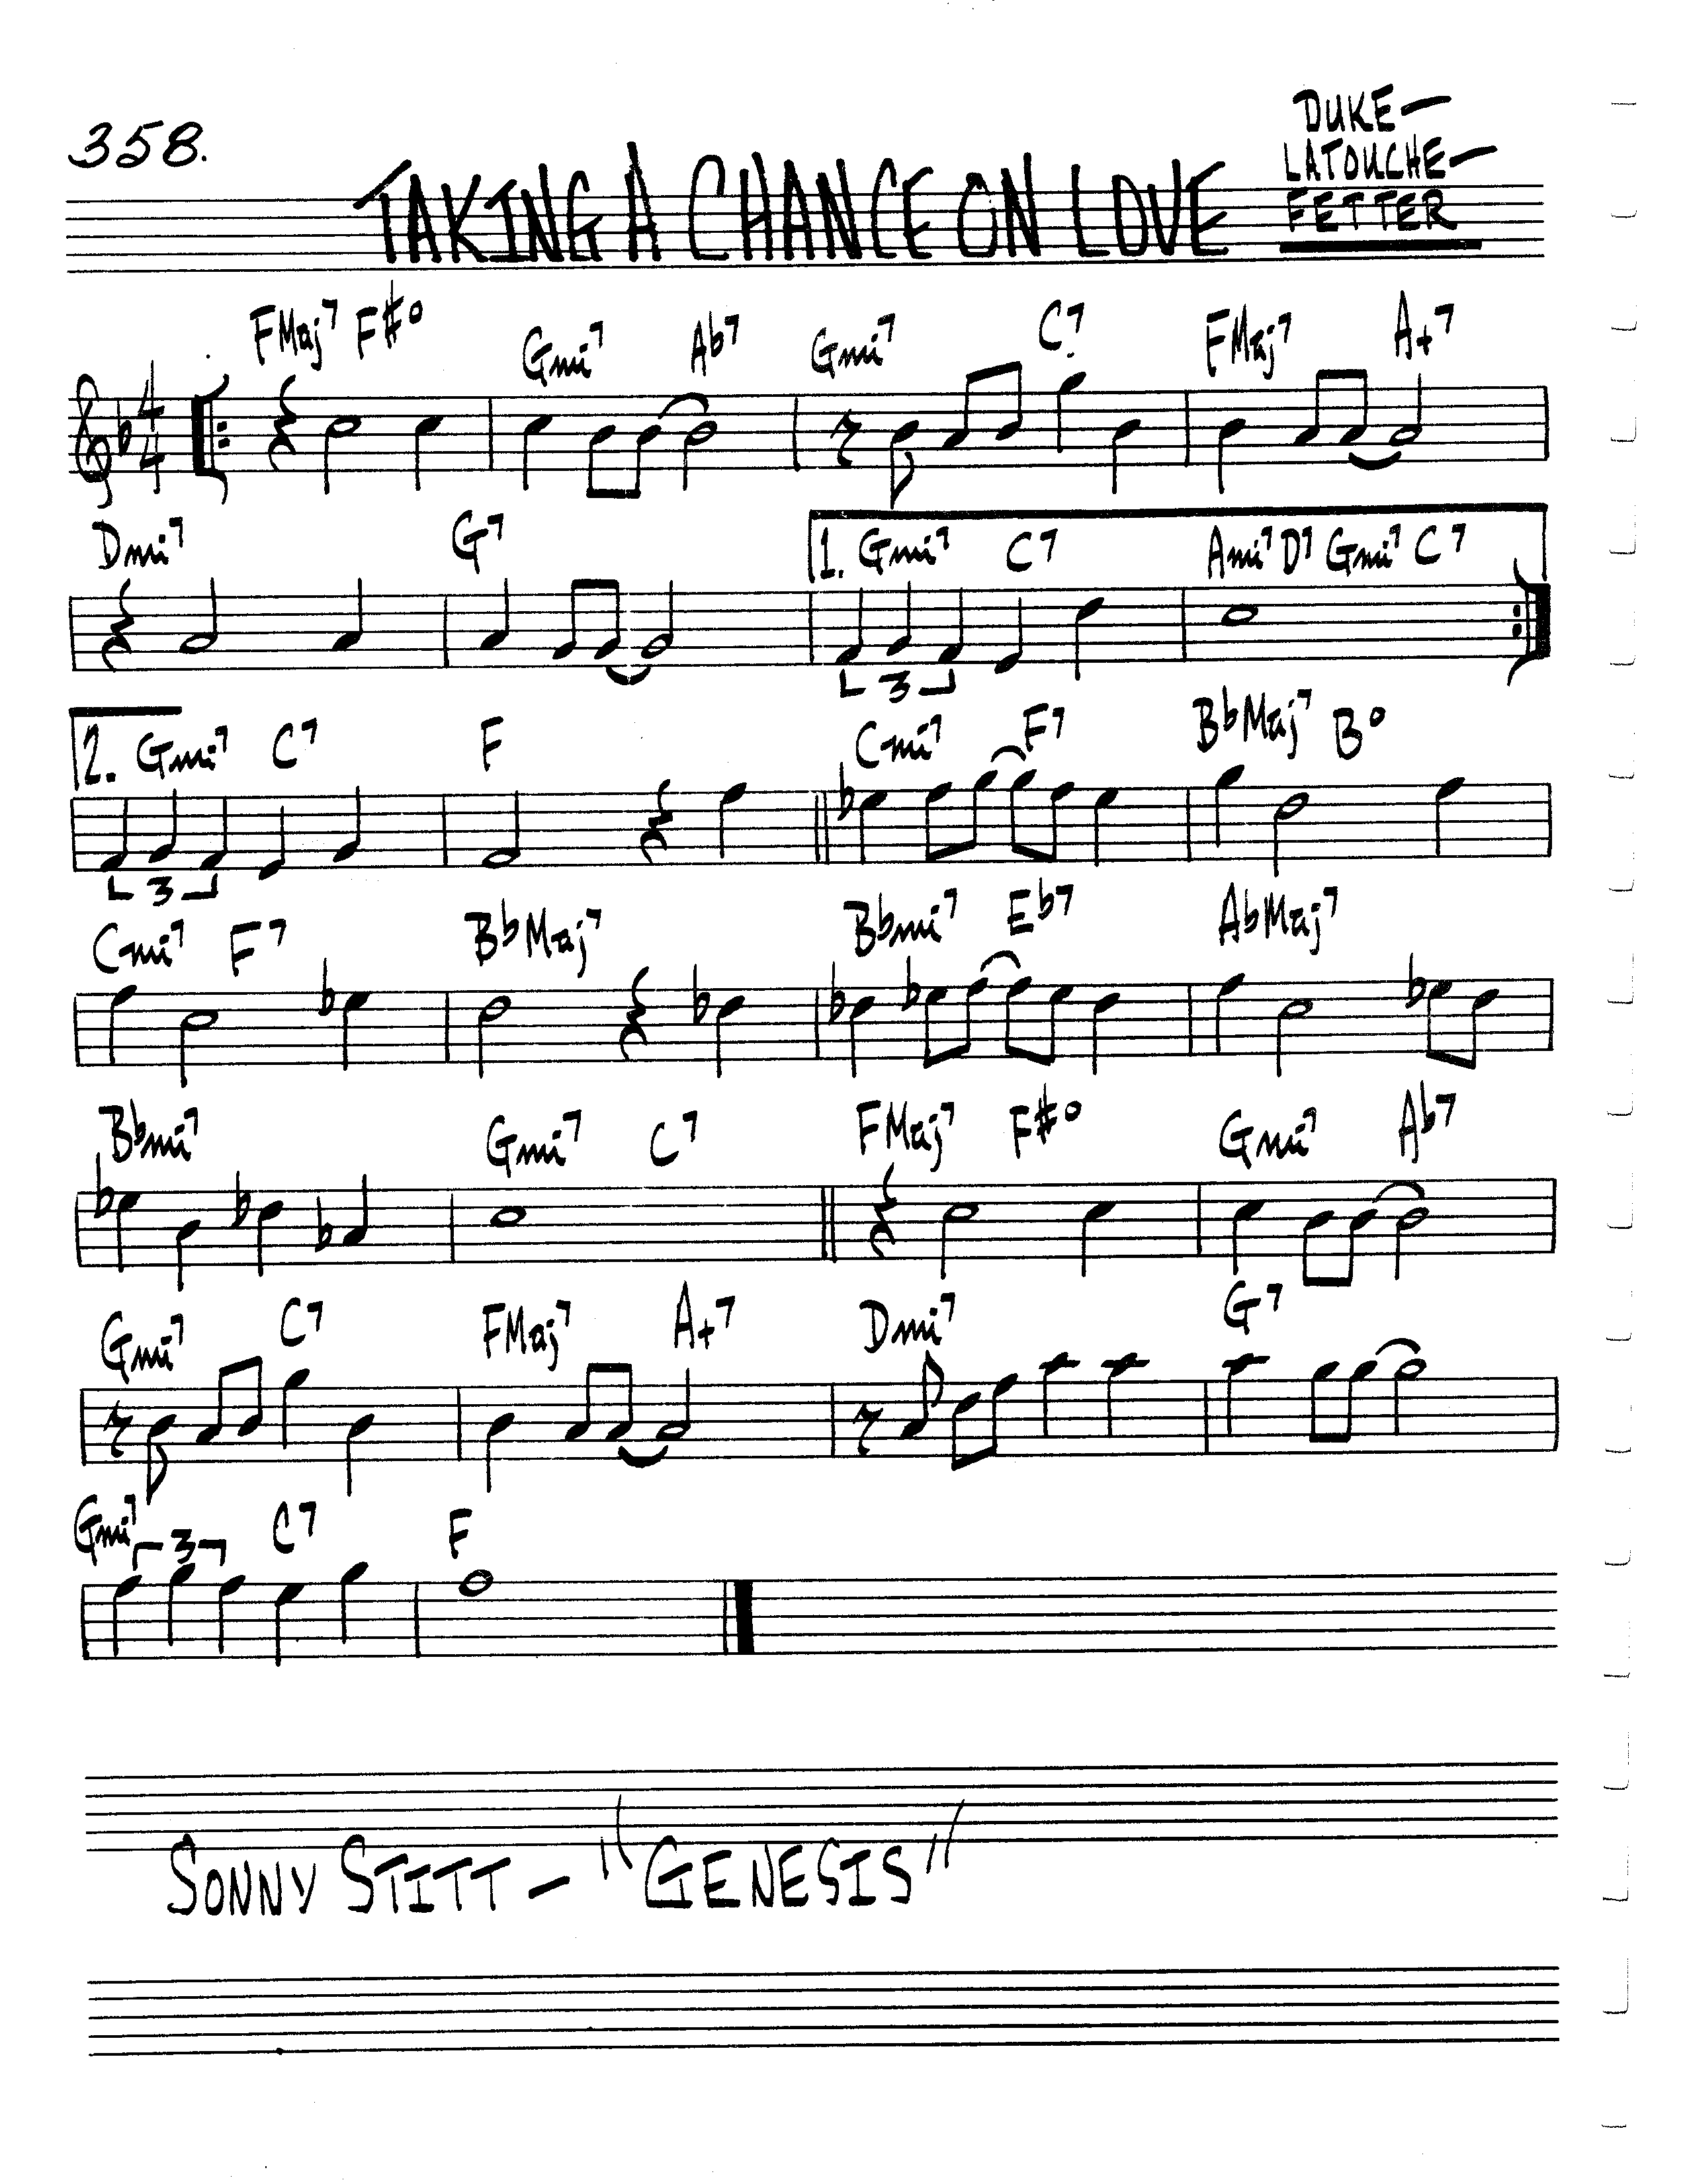 358.
DUKE—
LATOUCHE—
FETTER
TAKING A CHANCE ON LOVE
FMaj7 F#o Gmi7 Ab7 Gmi7 C7 FMaj7 A+7
4
4
Dmi7 G7 1. Gmi7 C7 Ami7 D7 Gmi7 C7
3
2. Gmi7 C7 F Cmi7 F7 BbMaj7 Bo
3
Cmi7 F7 BbMaj7 Bbmi7 Eb7 AbMaj7
Bbmi7 Gmi7 C7 FMaj7 F#o Gmi7 Ab7
Gmi7 C7 FMaj7 A+7 Dmi7 G7
Gmi7 3 C7 F
SONNY STITT — "GENESIS"